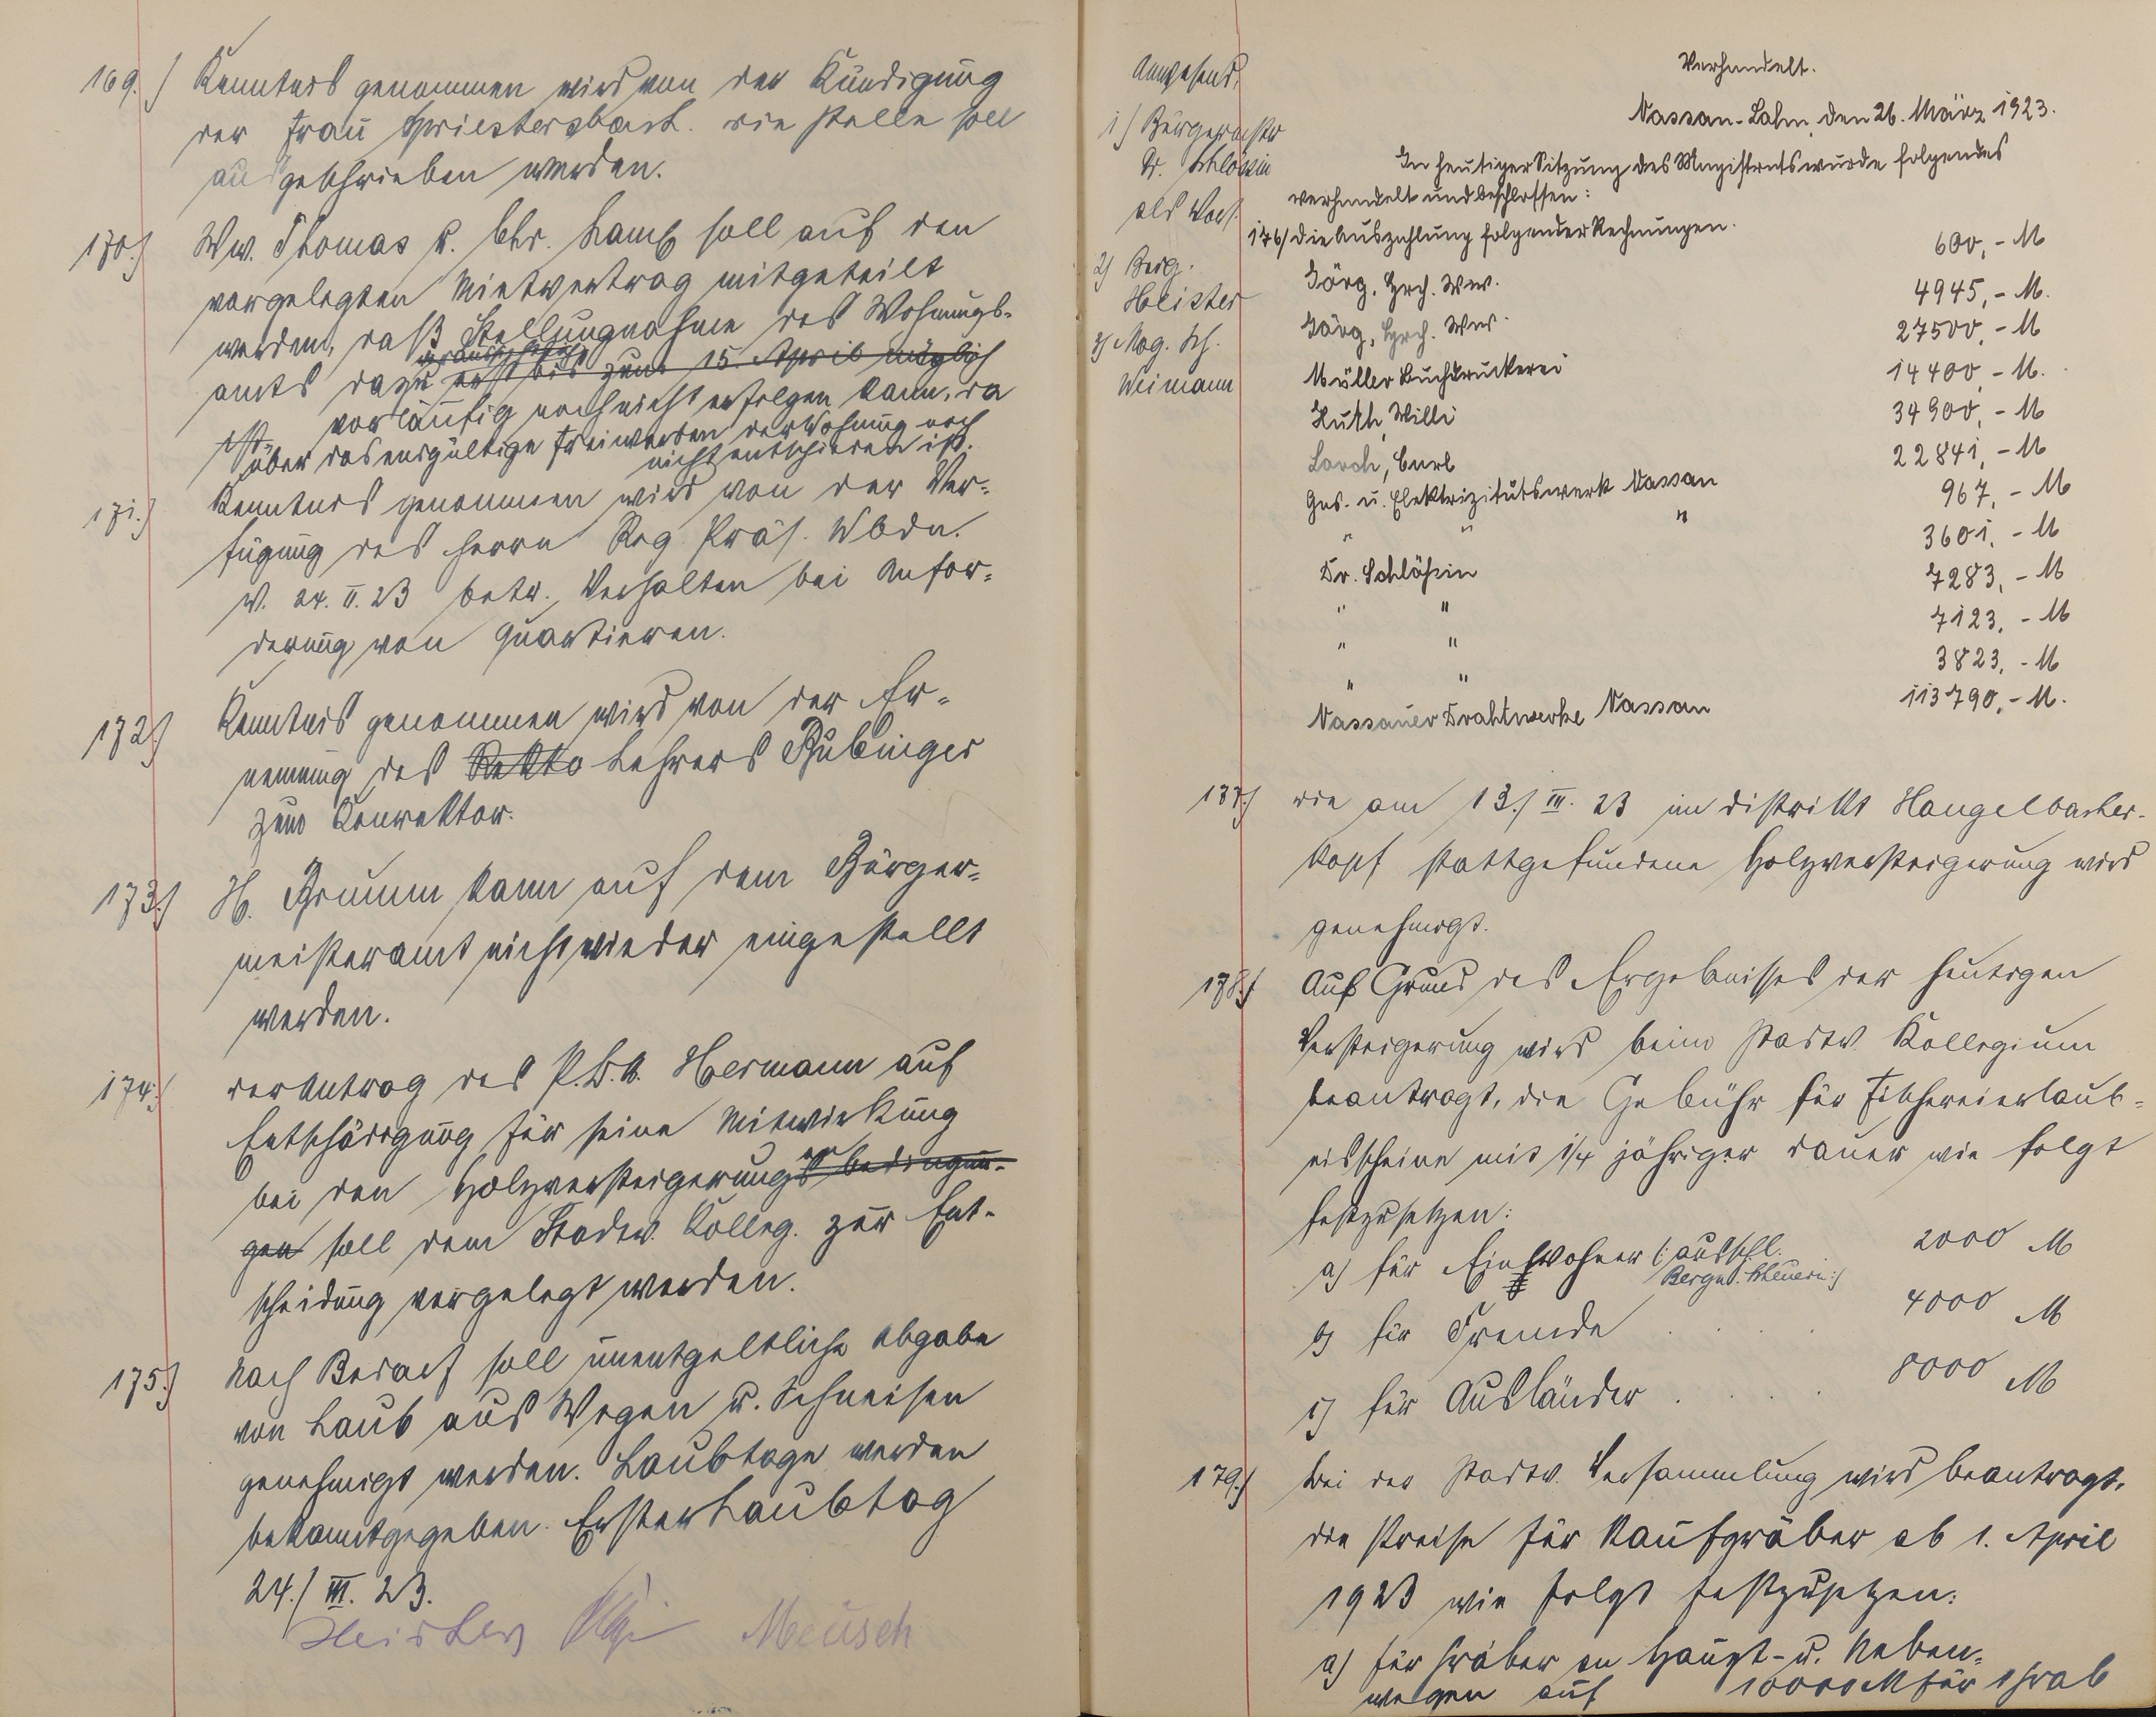 169.) Kenntnis genommen wird von der Kündigung
der Frau Spriestersbach. Die Stelle soll
ausgeschrieben werden.
170.) Ww. Thomas u. Chr. Lamb soll auf den
vorgelegten Mietvertrag mitgeteilt
werden, daß Stellungnahme des Wohnungs-
amts dazu erst bis zum 15. April möglich
vorläufig noch nicht erfolgen kann, da
ist.
über das endgültige Freiwerden der Wohnung noch
nicht entschieden ist.
171.) Kenntnis genommen wird von der Ver-
fügung des Herrn Reg. Präs. Wbdn.
v. 24. II. 23 betr. Verhalten bei Anfor-
derung von Quartieren.
172.) Kenntnis genommen wird von der Er-
nennung des Rekto Lehrers Bubinger
zum Konrektor.
173.) H. Grumm kann auf dem Bürger-
meisteramt nicht wieder eingestellt
werden.
174.) Der Antrag des P.B.A. Hermann auf
Entschädigung für seine Mitwirkung
bei den Holzversteigerungsbedingun-
gen soll dem Stadtv. Kolleg. zur Ent-
scheidung vorgelegt werden.
175.) Nach Bedarf soll unentgeltliche Abgabe
von Laub aus Wegen u. Schneisen
genehmigt werden. Laubtage werden
bekanntgegeben. Erster Laubtag
24./III. 23.
Heister Meusch
Anwesend,
1) Bürgermstr
Dr. Schlössin
als Vors.
2) Beig.
Heister
3) Mag. Sch.
Weimann
Verhandelt.
Nassau-Lahn, den 26. März 1923.
In heutiger Sitzung des Magistrats wurde folgendes
verhandelt und beschlossen:
176/ die Auszahlung folgender Rechnungen.
Jörg, Hrch. Ww. 600,- M
Jörg, Hrch. Ww. 4945,- M.
Müller Buchdruckerei 27500,- M
Huth, Willi 14400,- M.
Lorch, Carl 34900,- M
Gas- u. Elektrizitätswerk Nassau 22841,- M
" " " 967,- M
Dr. Schlößin 3601,- M
" " 7283,- M
" " 7123,- M
" " 3823,- M
Nassauer Drahtwerke Nassau 113790,- M.
177.) Die am 13./III. 23 im Distrikt Hangelbacher-
kopf stattgefundene Holzversteigerung wird
genehmigt.
178.) Auf Grund des Ergebnisses der heutigen
Versteigerung wird beim Stadtv. Kollegium
beantragt, die Gebühr für Fischereierlaub-
nisscheine mit 1/4 jähriger Dauer wie folgt
festzusetzen:
a) für Einwohner (: ausschl. 2000 M
Bergn. Scheuern:)
b) für Fremde . . . 4000 M
c) für Ausländer . . . . 8000 M
179.) Bei der Stadtv. Versammlung wird beantragt,
die Preise für Kaufgräber ab 1. April
1923 wie folgt festzusetzen:
a) für Gräber an Haupt- u. Neben-
wegen auf 10000 M für 1 Grab